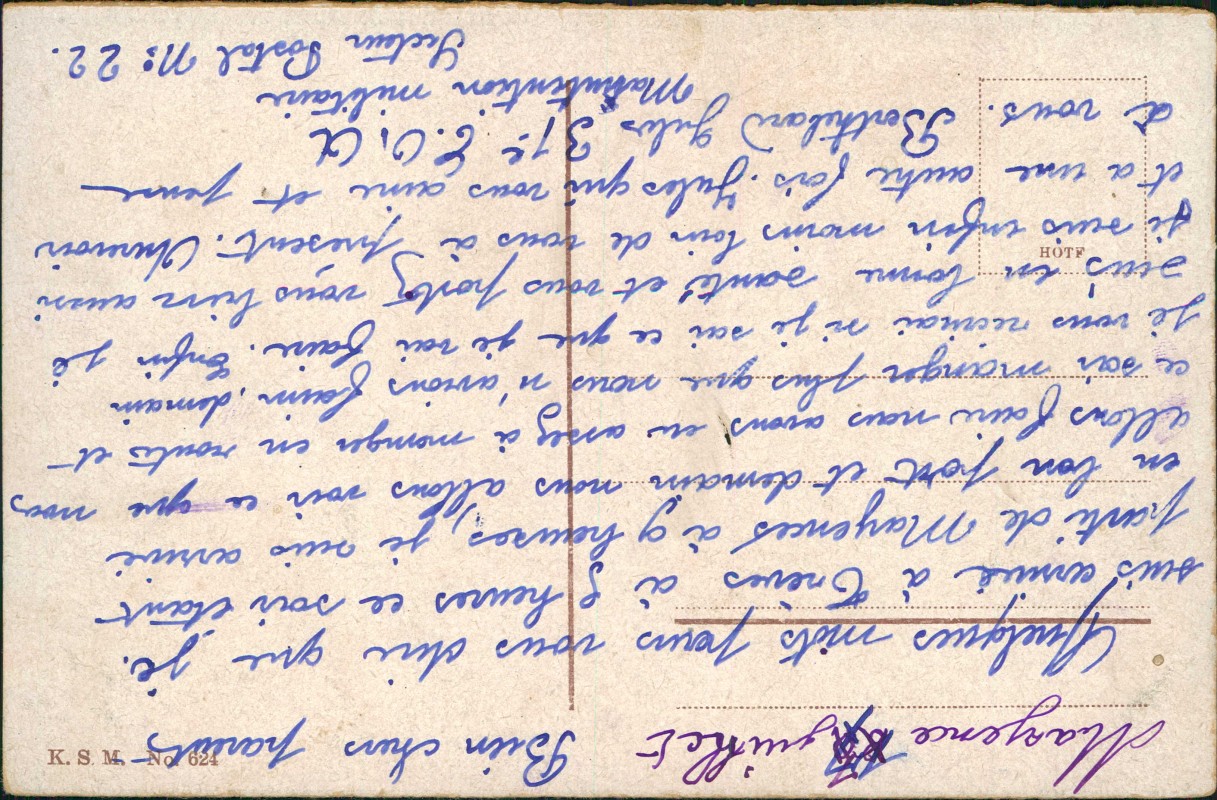 Mayence juillet
Bien chers parents
Quelques mots pour vous dire que je
suis arrivé à Trèves à 8 heures ce soir étant
parti de Mayences à 9 heures, je suis arrivé
en bon port et demain nous allons voir ce que nous
allons faire nous avons eu assez à manger en route et
ce soir manger plus que nous n'avions faim, demain
je vous récrirai si je sai ce que je vai faire. Enfin je
suis en bonne santé et vous portez vous bien aussi
je suis enfin moins loin de vous à présent. Aurevoir
et a une autre fois. Jules qui vous aime et pense
à vous. Berthiland Jules 31e C.O.A
Manutention militaire
Secteur Postal No: 22.
HOTF
K. S. M. No. 624